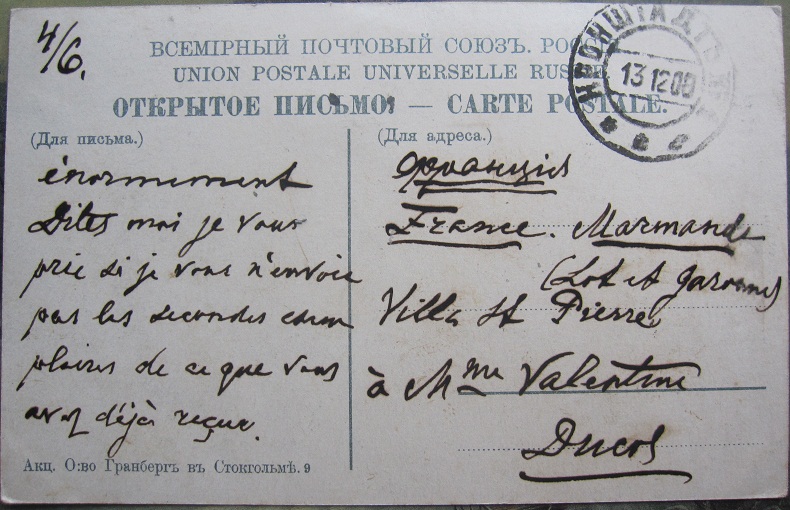 4/6.
ВСЕМІРНЫЙ ПОЧТОВЫЙ СОЮЗЪ. РОС
UNION POSTALE UNIVERSELLE RUS
ОТКРЫТОЕ ПИСЬМО — CARTE POSTALE.
КРОНШТАДТ
13 12 08
(Для письма.)
énormement
Dites moi je vous
prie si je vous n'envoie
pas les secondes exem
plaires de ce que vous
avez déjà reçus.
Акц. О:во Гранбергъ въ Стокгольмѣ. 9
(Для адреса.)
Франція
France. Marmande
(Lot et Garonne)
Villa St Pierre
à Mme Valentine
Ducos